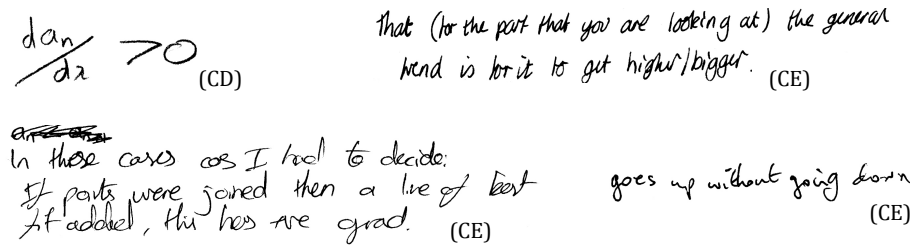 dan/dx >0
(CD)
That (for the part that you are looking at) the general
trend is for it to get higher/bigger.
(CE)
In these cases cos I had to decide:
If parts were joined then a line of best
fit added, this has +ve grad.
(CE)
goes up without going down
(CE)